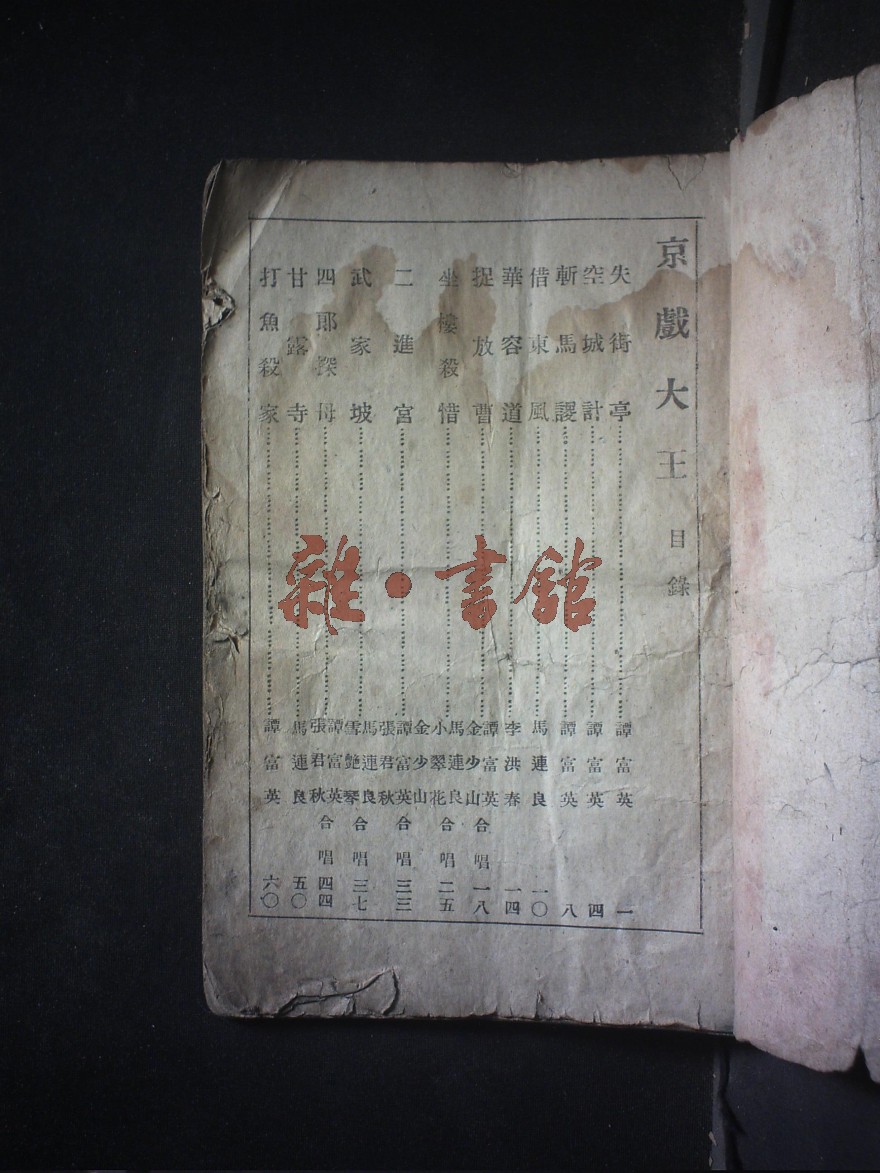 京戲大王 目錄
失街亭 譚富英 一
空城計 譚富英 四
斬馬謖 譚富英 八
借東風 馬連良 一〇
華容道 李洪春 一四
捉放曹 譚富英 金少山 合唱 一八
坐樓殺惜 馬連良 小翠花 合唱 二五
二進宮 金少山 譚富英 張君秋 合唱 三三
武家坡 馬連良 雪艶琴 合唱 三七
四郎探母 譚富英 張君秋 合唱 四四
甘露寺 馬連良 五〇
打魚殺家 譚富英 六〇
雜·書館